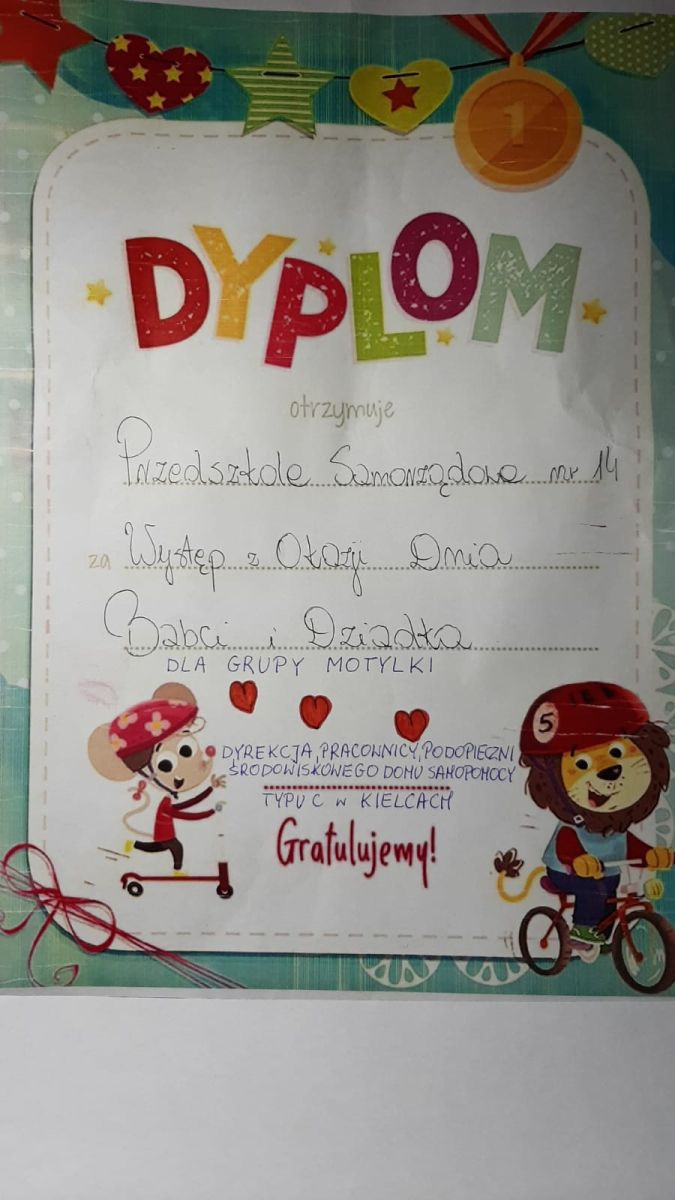 1
DYPLOM
otrzymuje
Przedszkole Samorządowe nr 14
za Występ z Okazji Dnia
Babci i Dziadka
DLA GRUPY MOTYLKI
5
DYREKCJA, PRACOWNICY, PODOPIECZNI
ŚRODOWISKOWEGO DOMU SAMOPOMOCY
TYPU C W KIELCACH
Gratulujemy!